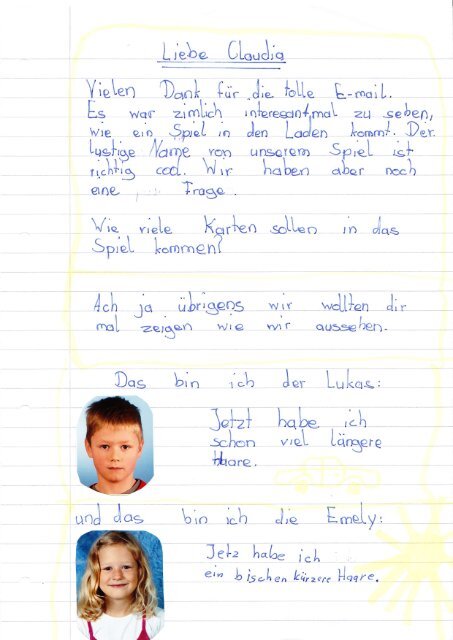 Liebe Claudia
Vielen Dank für die tolle E-mail.
Es war zimlich interesant, mal zu sehen,
wie ein Spiel in den Laden kommt. Der
lustige Name von unserem Spiel ist
richtig cool. Wir haben aber noch
eine Frage.
Wie viele Karten sollen in das
Spiel kommen?
Ach ja übrigens wir wollten dir
mal zeigen wie wir aussehen.
Das bin ich der Lukas:
Jetzt habe ich
schon viel längere
Haare.
und das bin ich die Emely:
Jetz habe ich
ein bischen kürzere Haare.